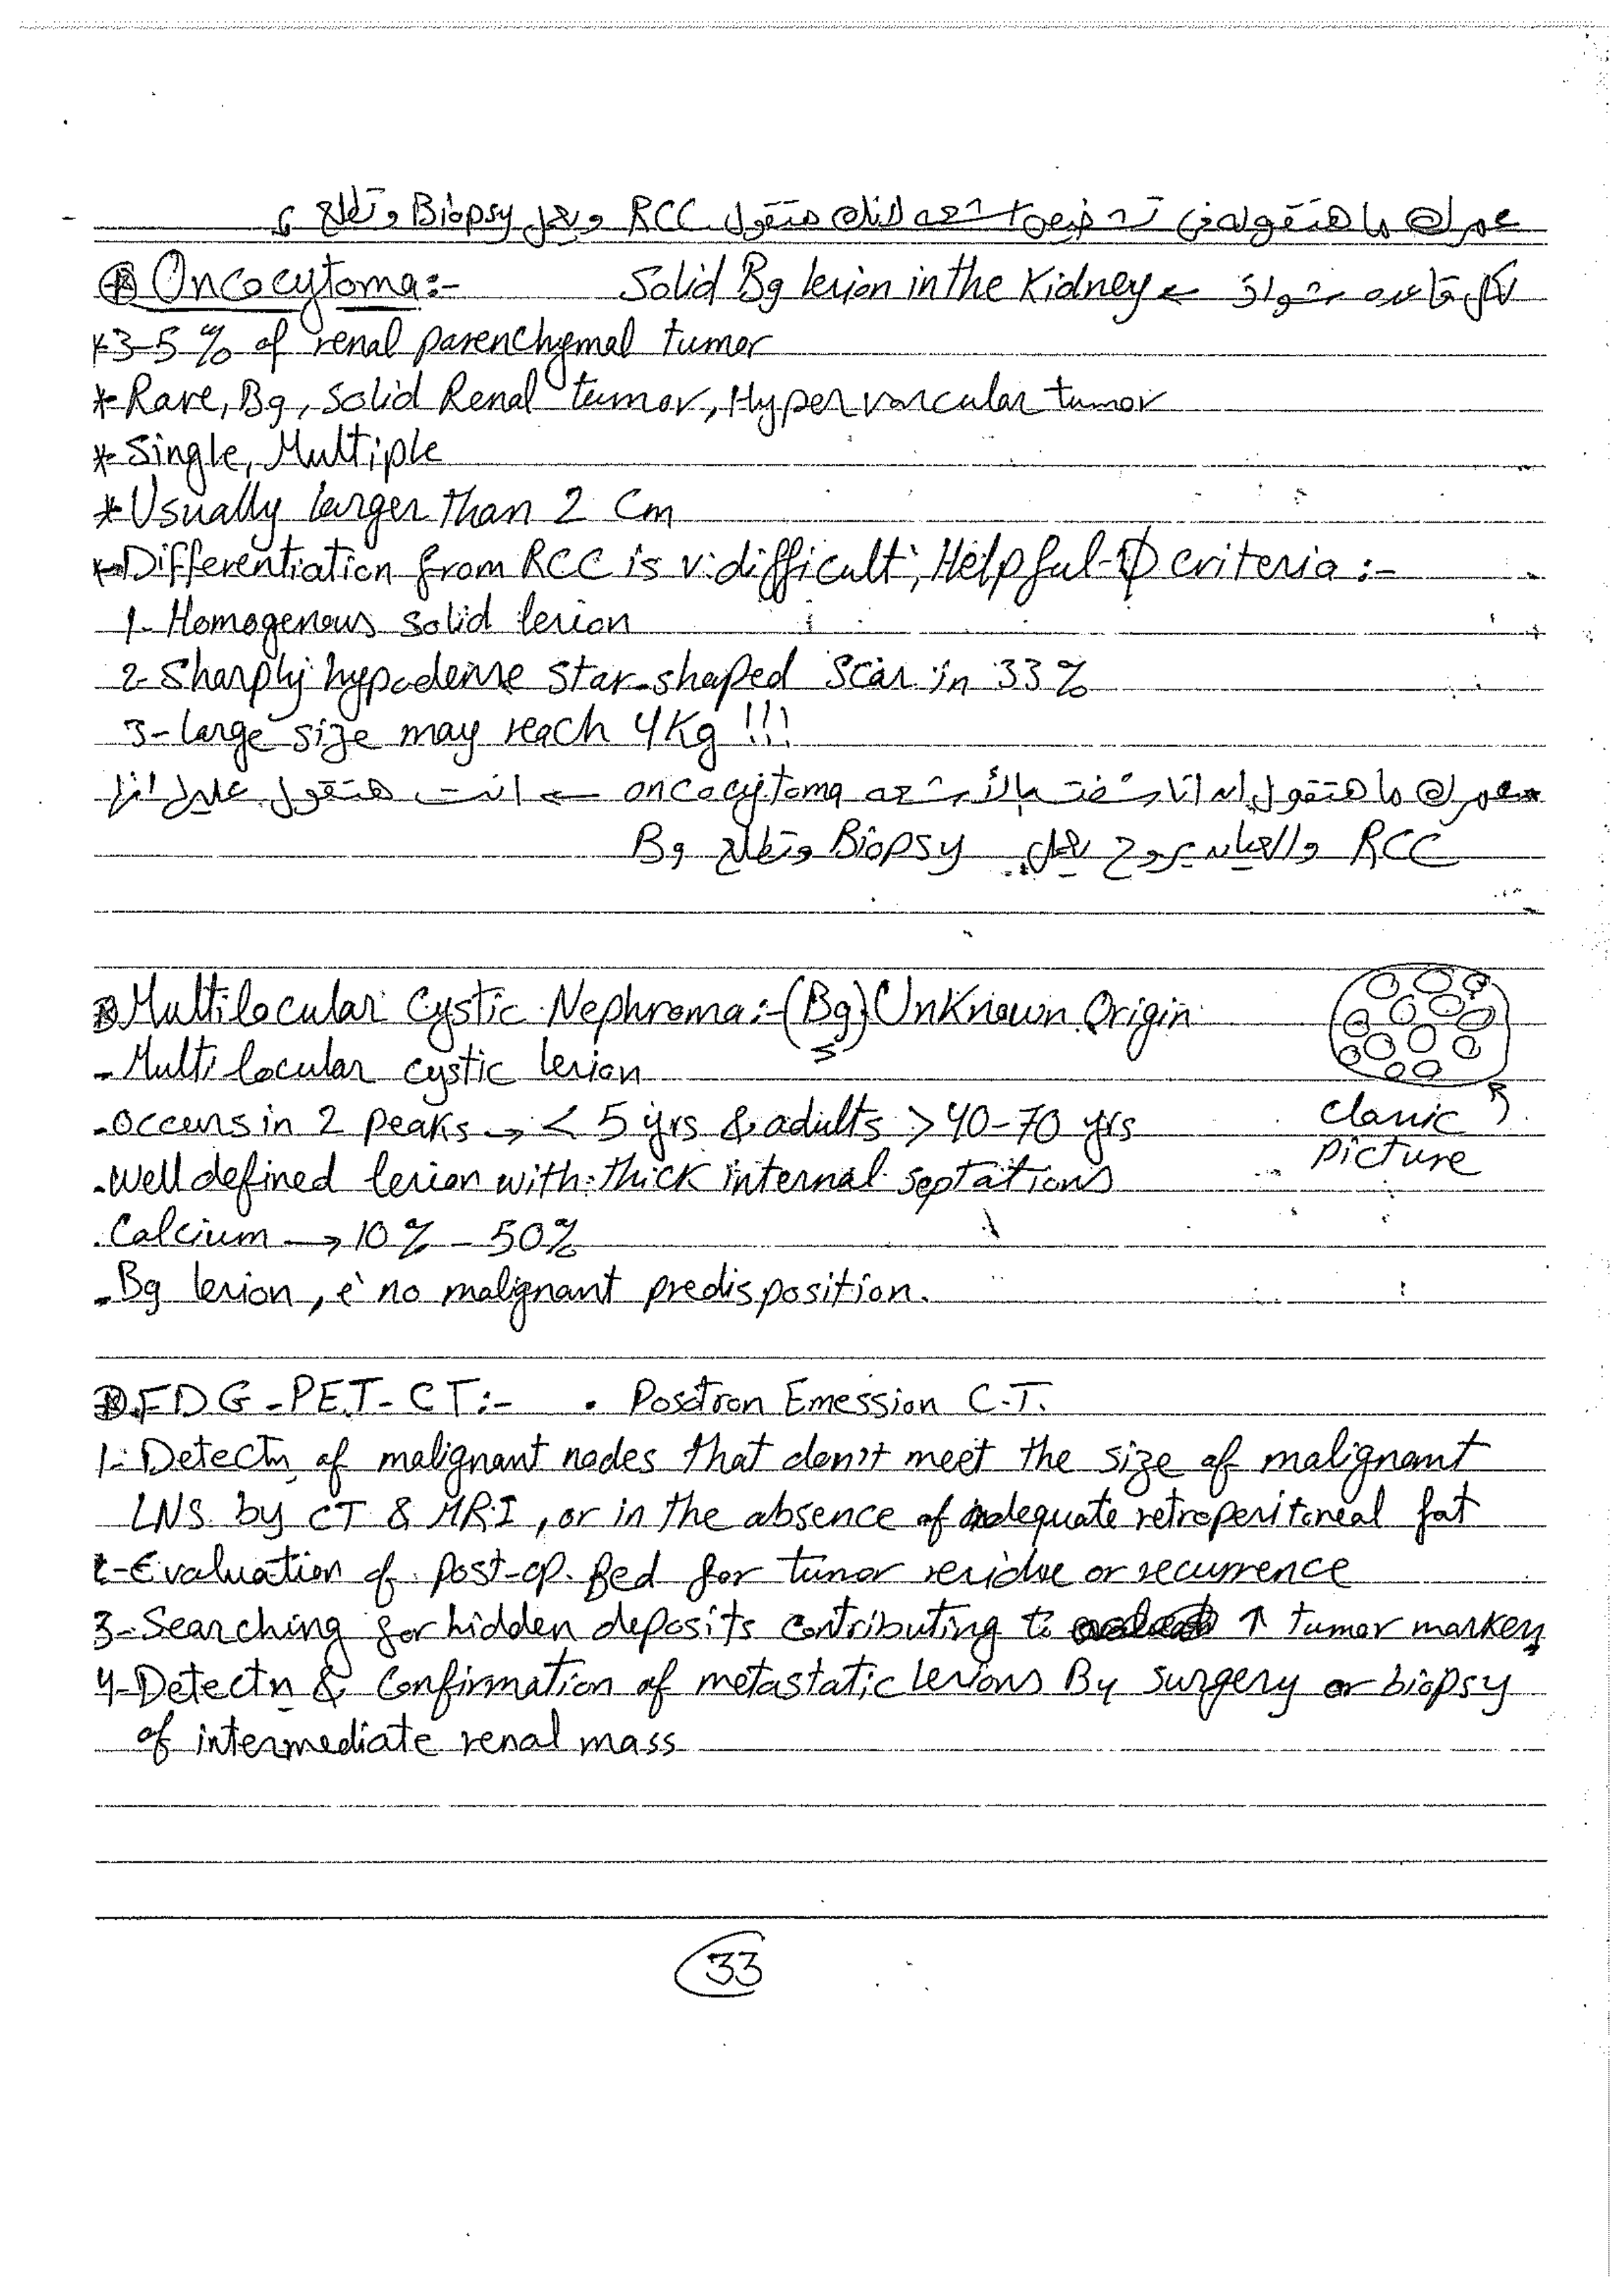 عمرك ما هتقول في تشخيص أشعه لانك هتقول RCC ويعمل Biopsy وتطلع
Oncocytoma:- Solid Bg lesion in the Kidney ← لكل قاعده شواذ
* 3-5 % of renal parenchymal tumor
* Rare, Bg, Solid Renal tumor, Hypervascular tumor
* Single, Multiple
* Usually larger than 2 Cm
* Differentiation from RCC is v. difficult, Helpful criteria :-
1- Homogenous solid lesion
2- Sharply hypodense star-shaped scar in 33 %
3- large size may reach 4Kg !!!
* عمرك ما هتقول انا شفت بالأشعه oncocytoma ← انت هتقول عليها انها
RCC والعيان يروح يعمل Biopsy وتطلع Bg
Multilocular Cystic Nephroma:- (Bg) UnKnown Origin
- Multilocular cystic lesion
- occurs in 2 peaks → < 5 yrs & adults > 40-70 yrs
classic picture
- Well defined lesion with thick internal septations
. Calcium → 10 % - 50%
- Bg lesion, è no malignant predisposition.
FDG-PET-CT:- . Positron Emession C.T.
1- Detectn of malignant nodes that don't meet the size of malignant
LNS by CT & MRI, or in the absence of adequate retroperitoneal fat
2- Evaluation of post-op. Bed for tumor residue or recurrence
3- Searching for hidden deposits contributing to ↑ tumor markers
4- Detectn & Confirmation of metastatic lesions By surgery or biopsy
of intermediate renal mass
33